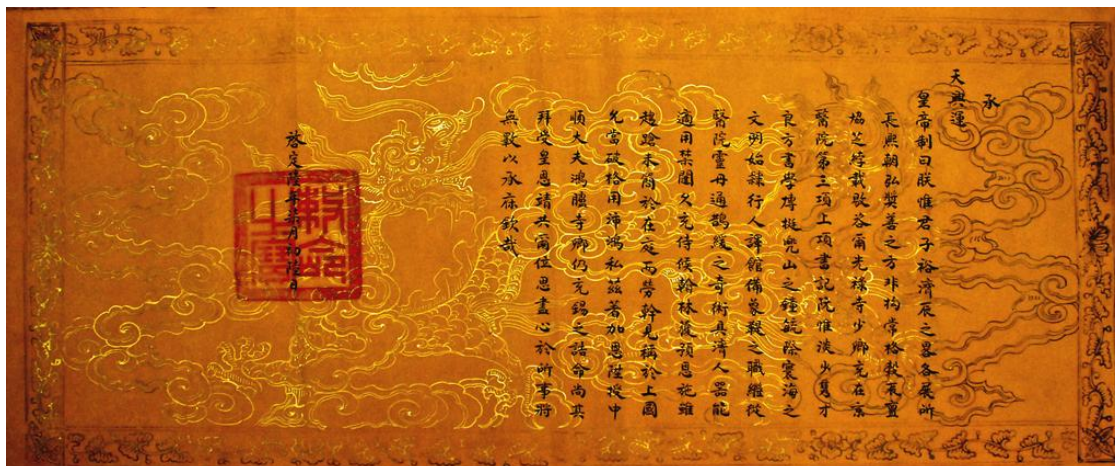 承
天興運
皇帝制曰朕惟君子裕濟辰之畧各展所
長熙朝弘獎善之方非拘常格載夜置
煬芝綍載敭咨甯光祿寺少卿充在京
醫院第三項上項書記阮惟淡少負才
良方書學博挺兜山之鍾能探寰海之
文明始隸行人譯館備象鞮之職繼從
醫院靈丹通鵲緩之奇術具濟人器能
適用禁闥久充侍候翰林薦預恩施雖
趨蹌未簡於在定而勞幹見稱於上國
允當破格用沛鴻私茲著加恩陞授中
順大夫鴻臚寺卿仍充錫之誥命尚其
拜受皇恩靖共爾位思盡心於所事將
無斁以承庥欽哉
啓定陸年 月初陸日
制誥之寶